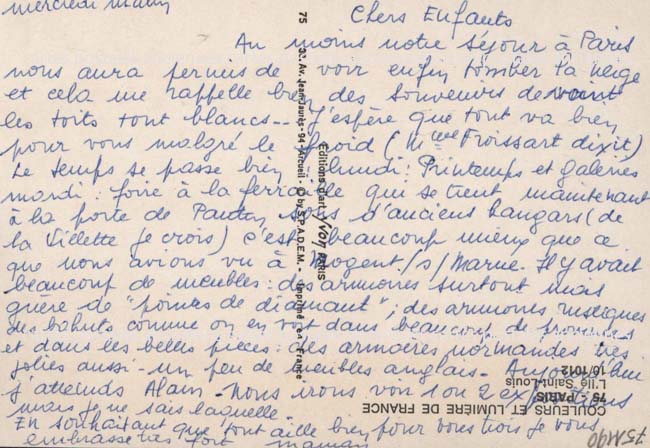 mercredi matin
Chers Enfants
Au moins notre séjour à Paris
nous aura permis de voir enfin tomber la neige
et cela me rappelle bien des souvenirs devant
les toits tout blancs -- J'espère que tout va bien
pour vous malgré le froid (Mme Froissart dixit)
Le temps se passe bien lundi: Printemps et galeries
mardi: foire à la ferraille qui se tient maintenant
à la porte de Pantin sous d'anciens hangars (de
la Villette je crois) c'est beaucoup mieux que ce
que nous avions vu à Nogent /s/ Marne. Il y avait
beaucoup de meubles: des armoires surtout mais
guère de "pointes de diamant"; des armoires rustiques
des bahuts comme on en voit dans beaucoup de
et dans les belles pièces: des armoires normandes très
jolies aussi - un peu de meubles anglais - Aujourd'hui
j'attends Alain - nous irons voir 1 ou 2 expositions
mais je ne sais laquelle.
En souhaitant que tout aille bien pour vous trois je vous
embrasse très fort maman
75
3, Av. Jean-Jaurès - 94 - Arcueil - © by S.P.A.D.E.M. - Imprimé en France
Editions d'art YVON PARIS
COULEURS ET LUMIÈRE DE FRANCE
75 - PARIS
L'Ile Saint-Louis
10/1012